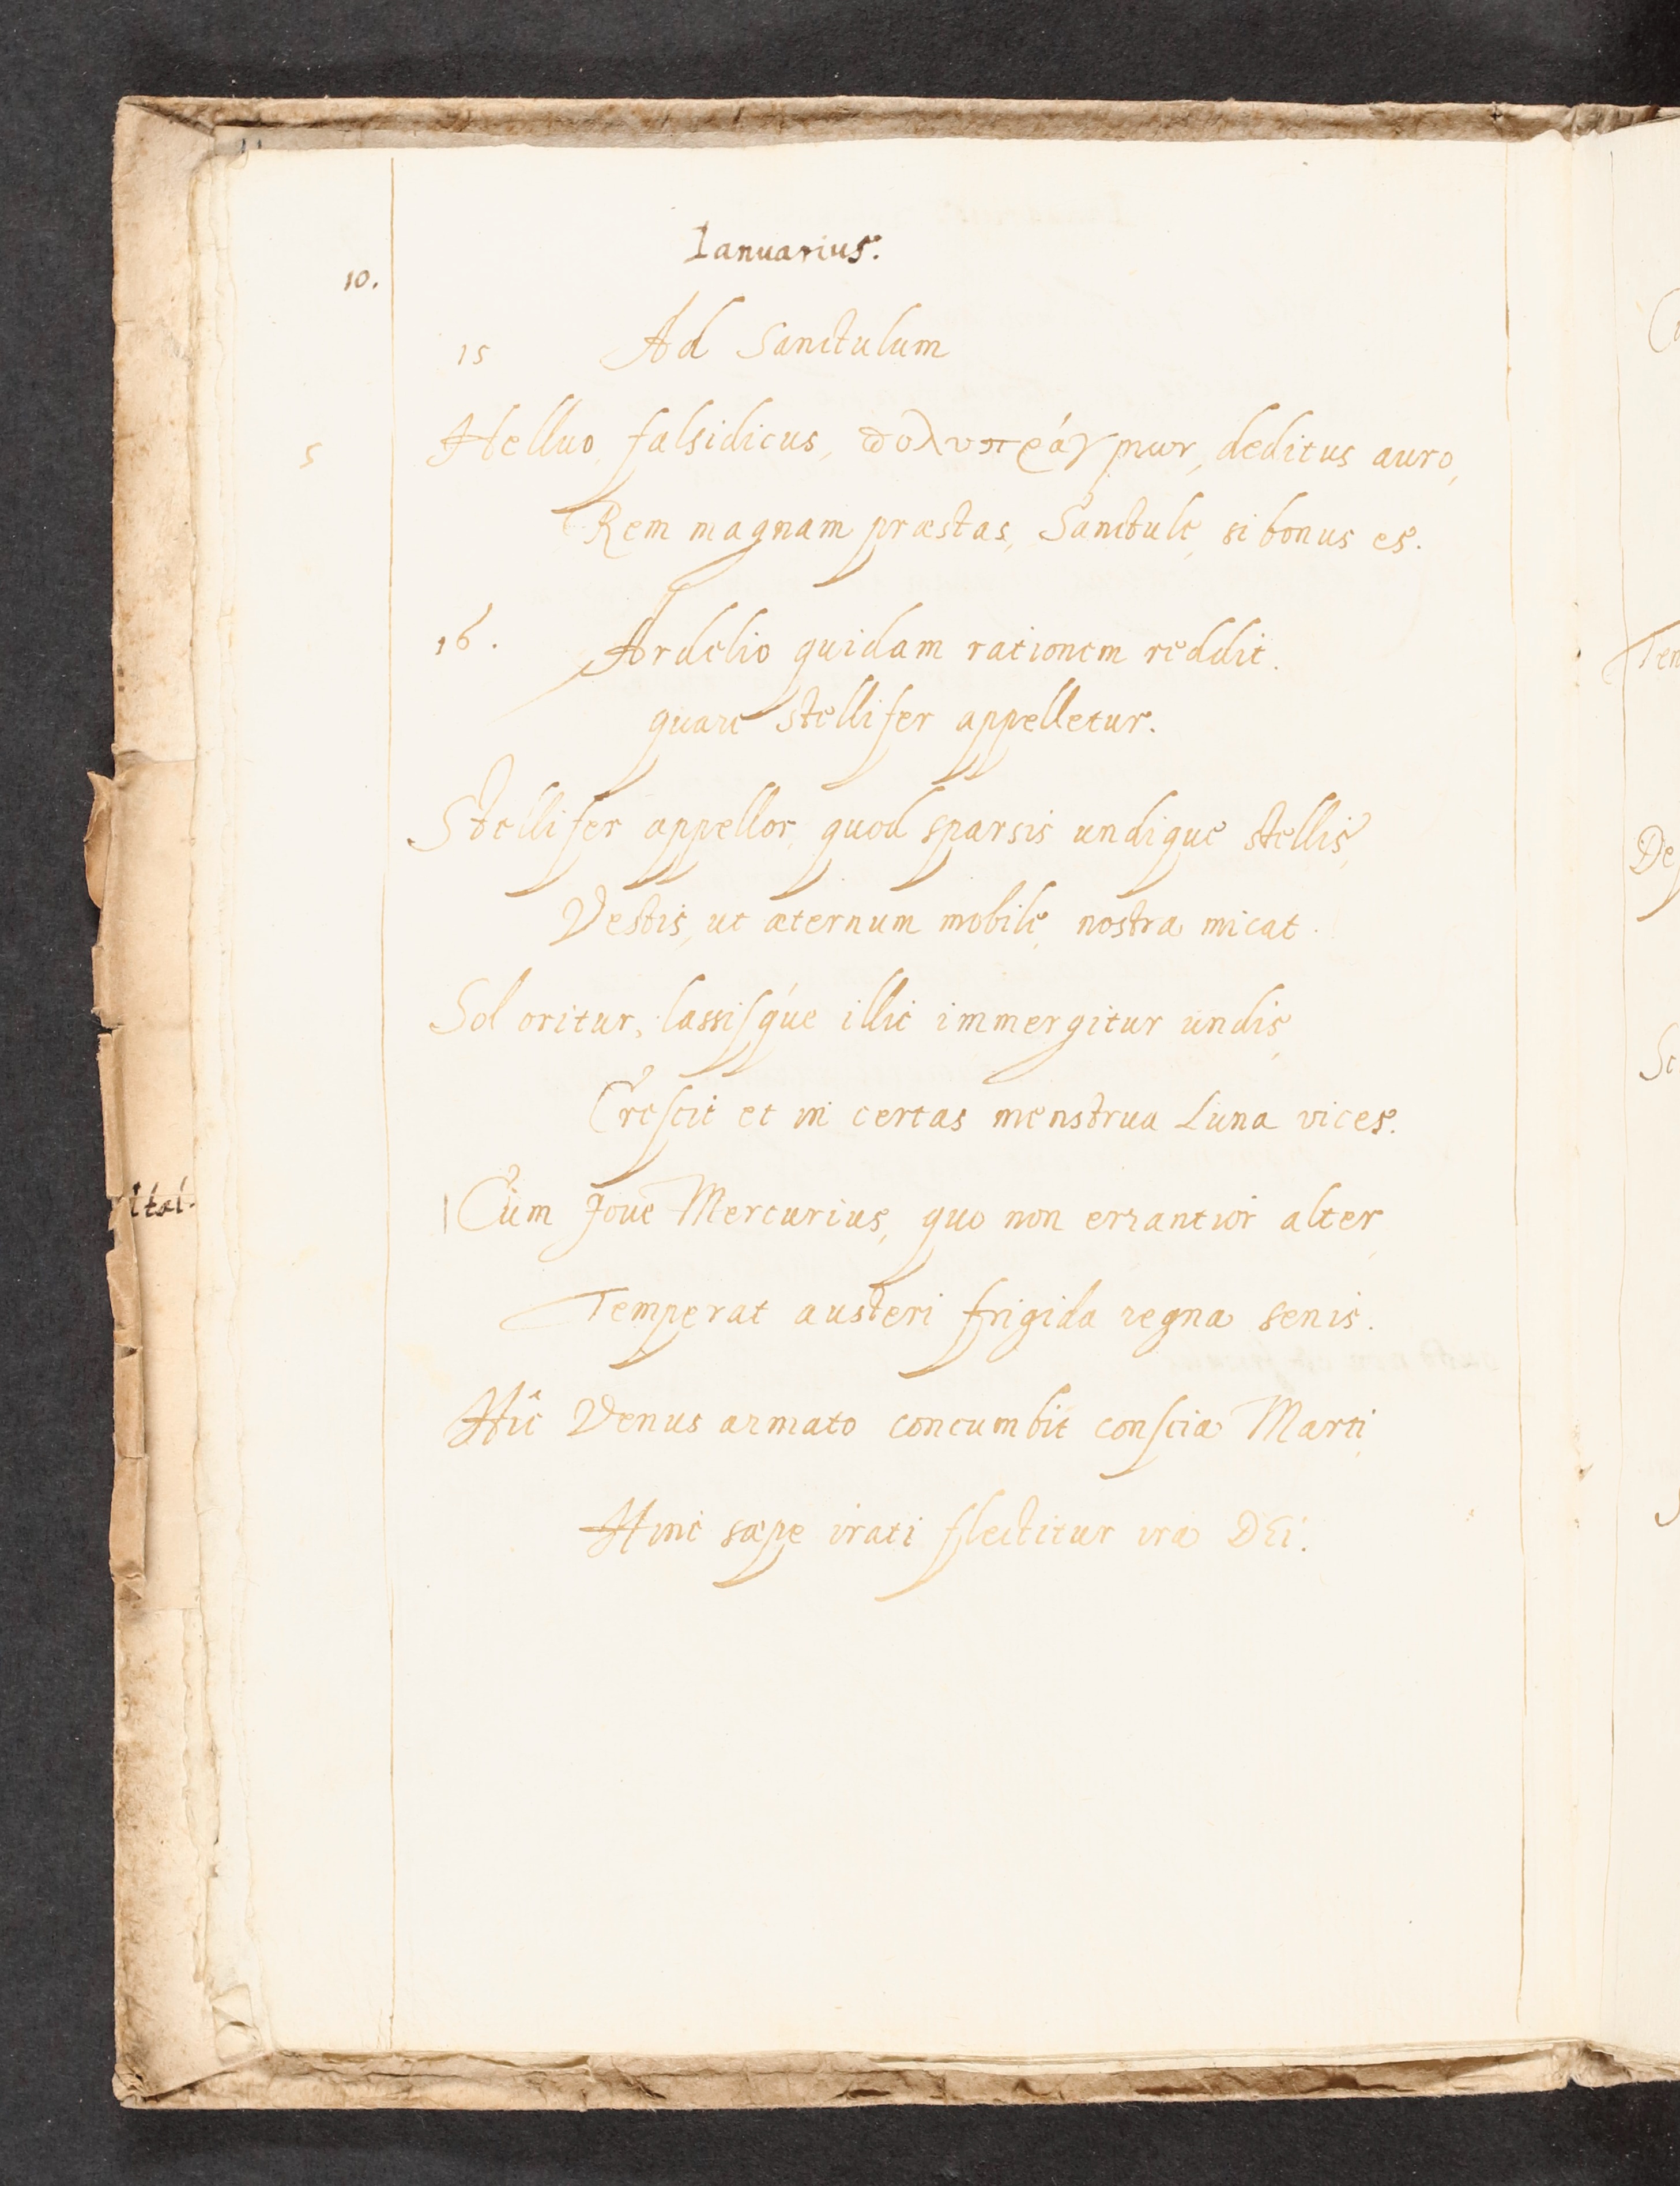 Ianuarius.
10.
15 Ad Sanctulum
5 Helluo, falsidicus, πολυπράγμων, deditus auro,
Rem magnam præstas, Sanctule, si bonus es.
16. Ardelio quidam rationem reddit.
quare stellifer appelletur.
Stellifer appellor, quod sparsis undique stellis,
Vestis, ut æternum mobile, nostra micat.
Sol oritur, lassisq́ue illic immergitur undis,
Crescit et in certas menstrua Luna vices.
Cum Joue Mercurius, quo non errantior alter,
Temperat austeri frigida regna senis.
Hîc Venus armato concumbit conscia Marti,
Hinc sæpe irati flectitur ira DEi.